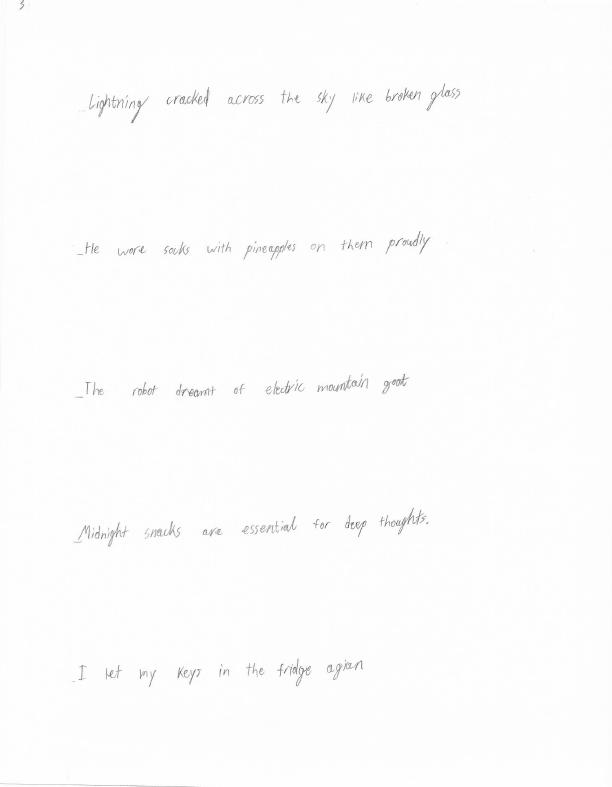 3
Lightning cracked across the sky like broken glass
He wore socks with pineapples on them proudly
The robot dreamt of electric mountain goat
Midnight snacks are essential for deep thoughts.
I let my keys in the fridge agian